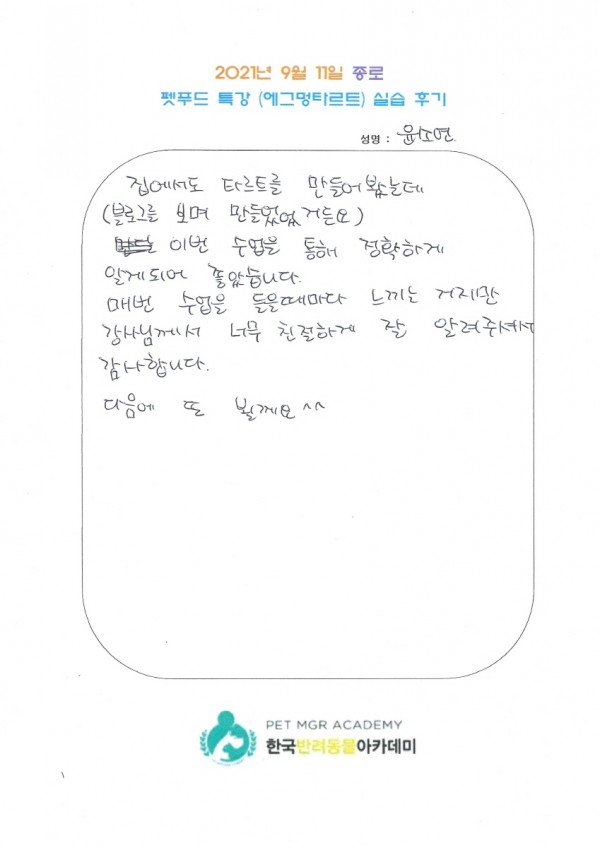 2021년 9월 11일 종로
펫푸드 특강 (에그멍타르트) 실습 후기
성명 : 윤소연
집에서도 타르트를 만들어봤는데
(블로그를 보며 만들었었거든요)
이번 수업을 통해 정확하게
알게되어 좋았습니다.
매번 수업을 들을때마다 느끼는 거지만
강사님께서 너무 친절하게 잘 알려주셔서
감사합니다.
다음에 또 뵐께요 ^^
PET MGR ACADEMY
한국반려동물아카데미